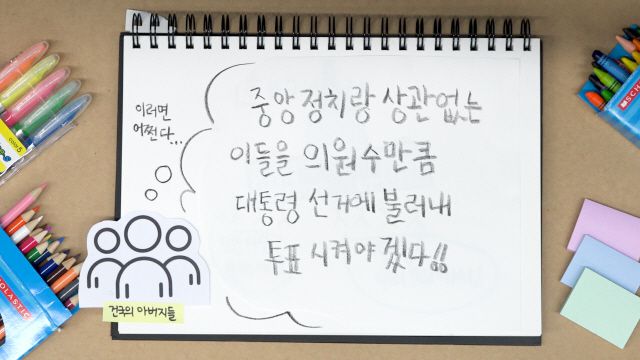 이러면
어쩐다...
중앙정치랑 상관없는
이들을 의원수만큼
대통령 선거에 불러내
투표 시켜야겠다!!
건국의 아버지들
color 5
SCHOLASTIC